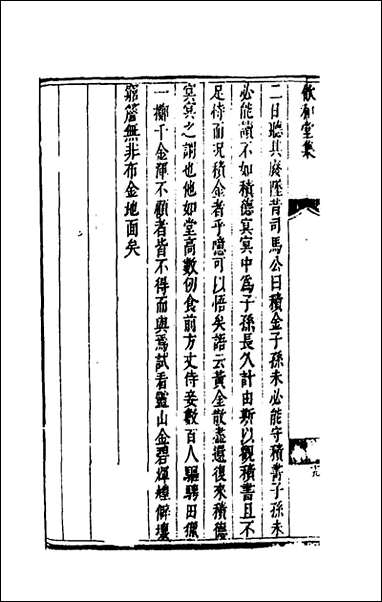 飲和堂集
二日聽其廢墜昔司馬公曰積金子孫未必能守積書子孫未
必能讀不如積德冥冥中爲子孫長久計由斯以觀積書且不
足恃而況積金者乎噫可以悟矣語云黃金散盡還復來積德
冥冥之謂也他如堂高數仞食前方丈侍妾數百人驅騁田獵
一擲千金渾不顧者皆不得而與焉試看靈山金碧輝煌僻壤
窮簷無非布金地面矣